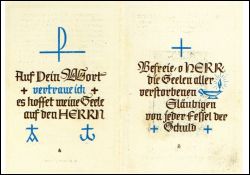 Auf Dein Wort
vertraue ich
es hoffet meine Seele
auf den HERRN
Befreie, o HERR
die Seelen aller
verstorbenen
Gläubigen
von jeder Fessel der
Schuld